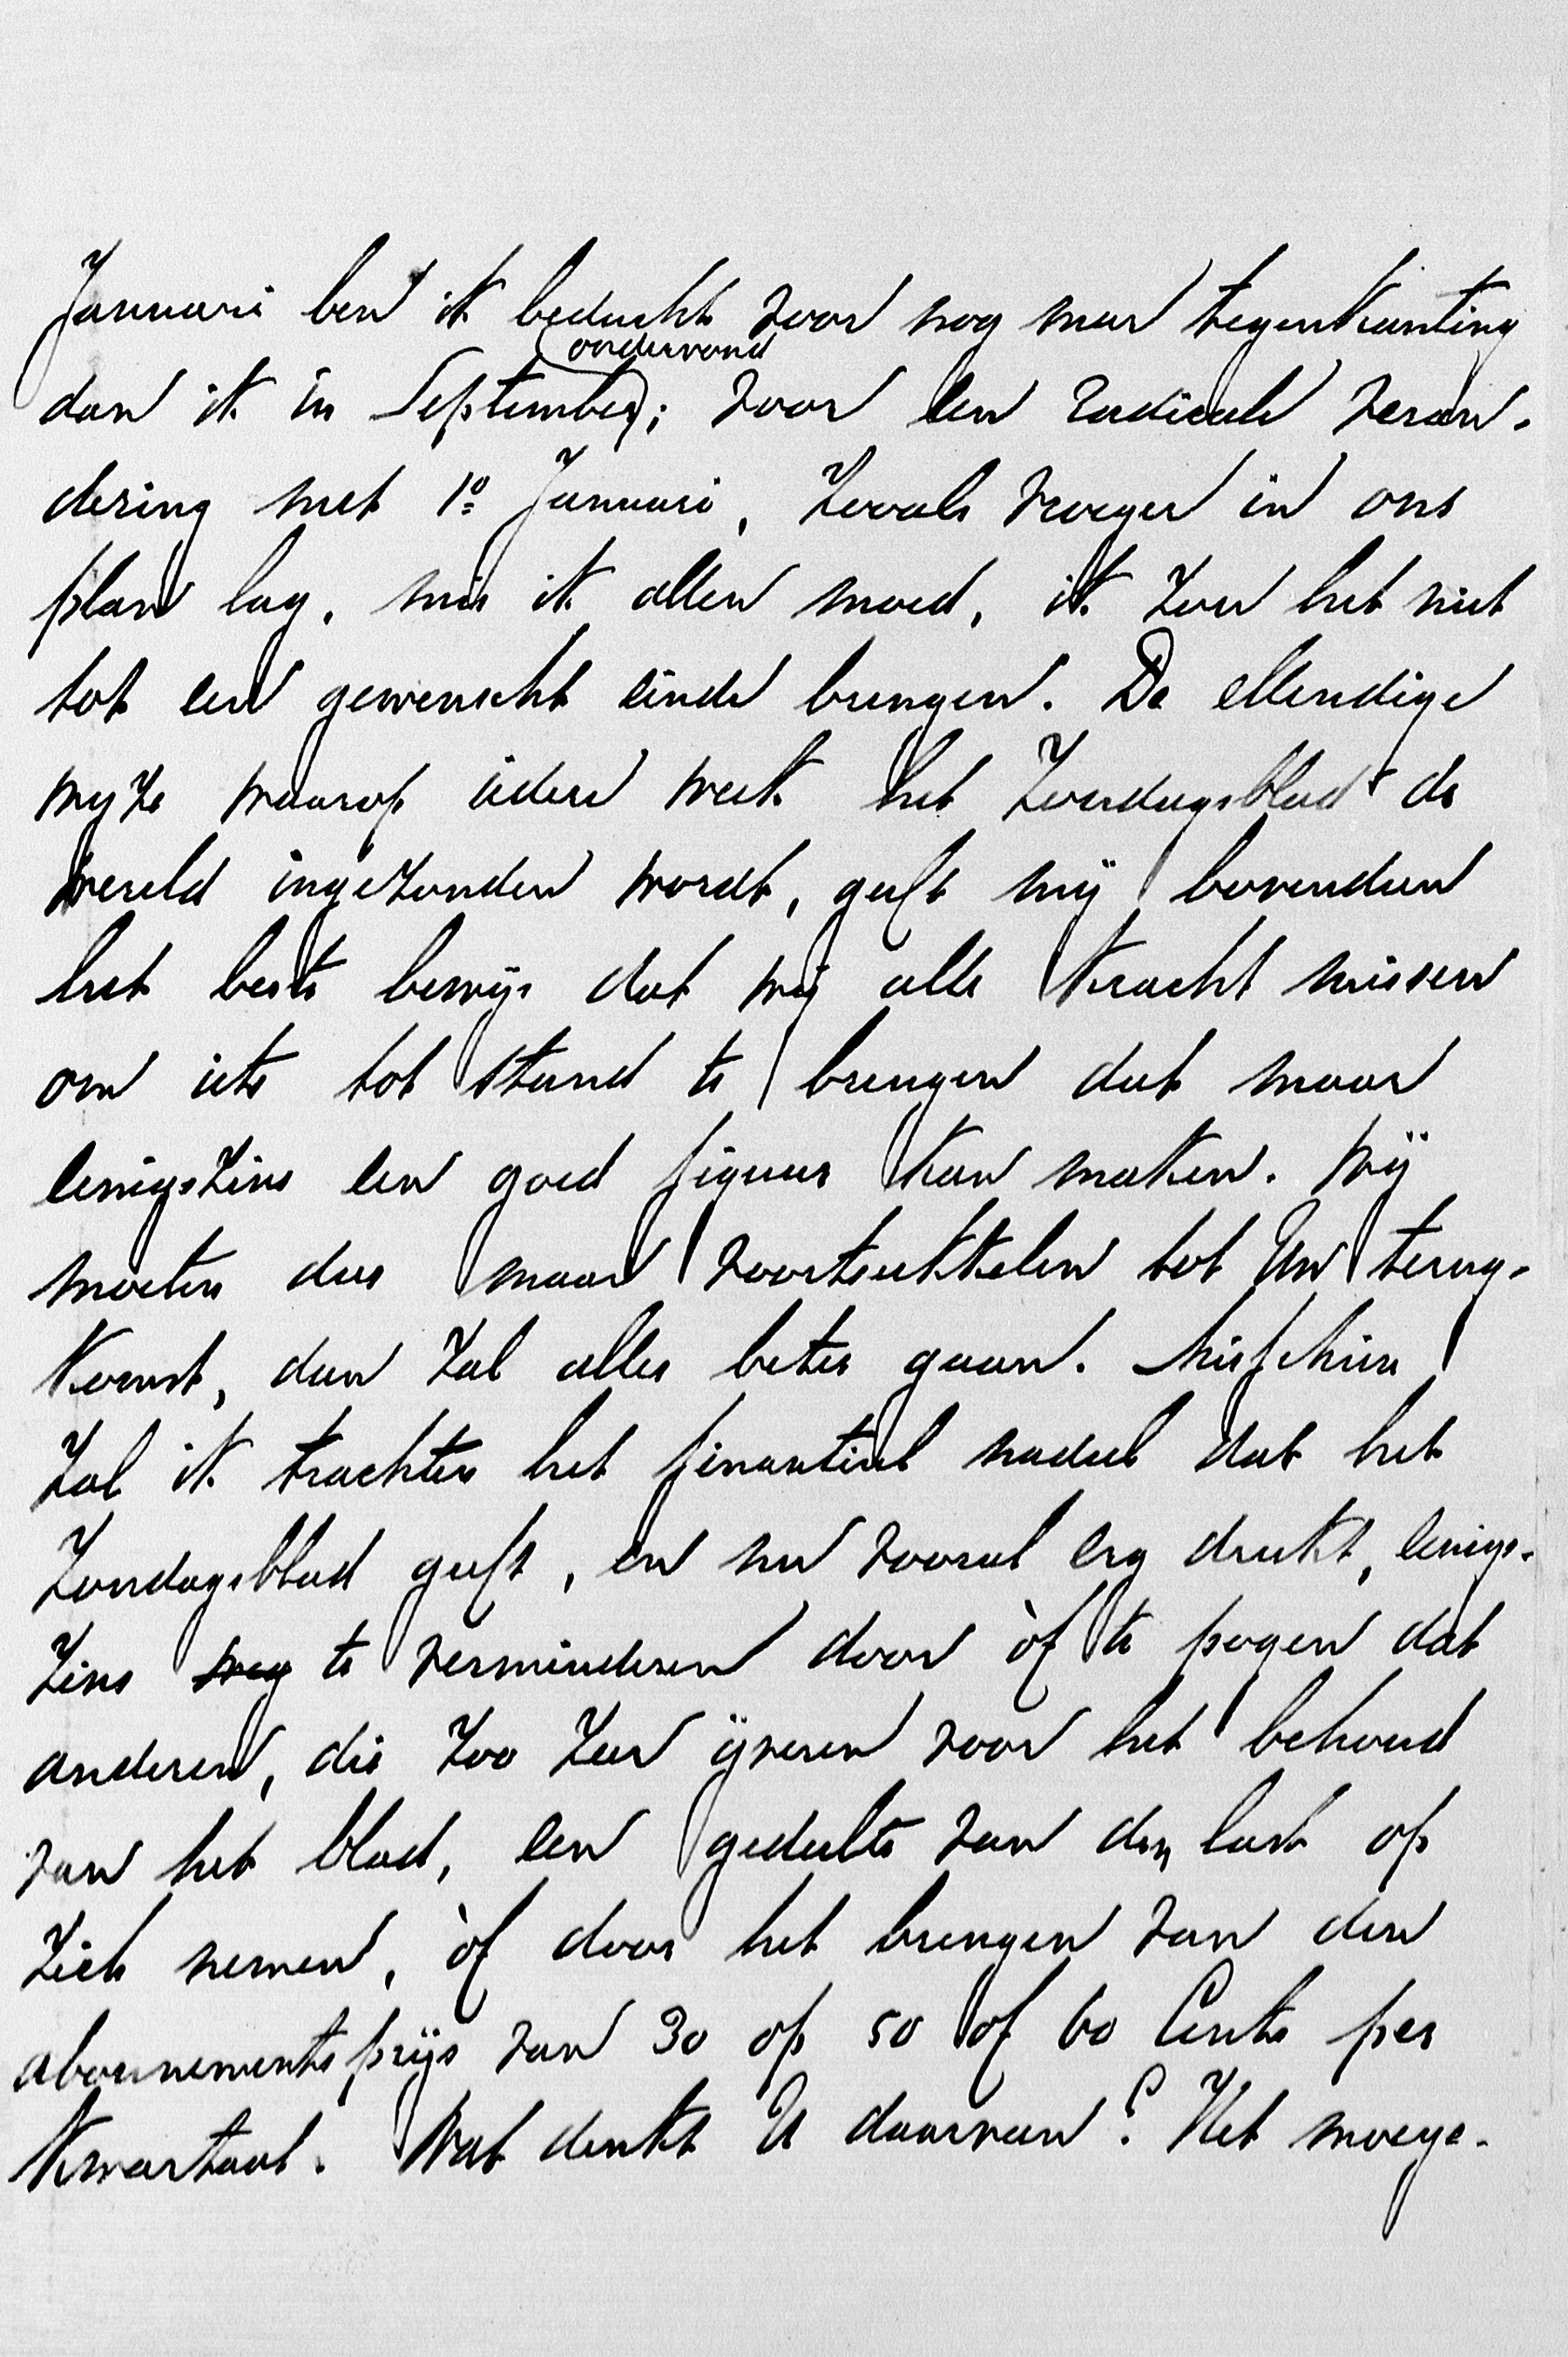 Januari ben ik beducht voor nog meer tegenkanting
dan ik in September ondervond; voor een radicale veran-
dering met 1º Januari, zooals vroeger in ons
plan lag, mis ik allen moed, ik zou het niet
tot een gewenscht einde brengen. De ellendige
wyze waarop iedere week het Zondagsblad de
wereld ingezonden wordt, geeft mij bovendien
het beste bewijs dat wij alle kracht missen
om iets tot stand te brengen dat maar
eenigszins een goed figuur kan maken. Wij
moeten dus maar voortsukkelen tot Uw terug-
komst, dan zal alles beter gaan. Misschien
zal ik trachten het finantieel nadeel dat het
Zondagsblad geeft, en nu vooral erg drukt, eenigs-
zins weg te verminderen door òf te pogen dat
anderen, die zoo zeer ijveren voor het behoud
van het blad, een gedeelte van den last op
zich nemen, òf door het brengen van den
abonnementsprijs van 30 op 50 of 60 Cents per
kwartaal. Wat denkt U daarvan? Het moeye-